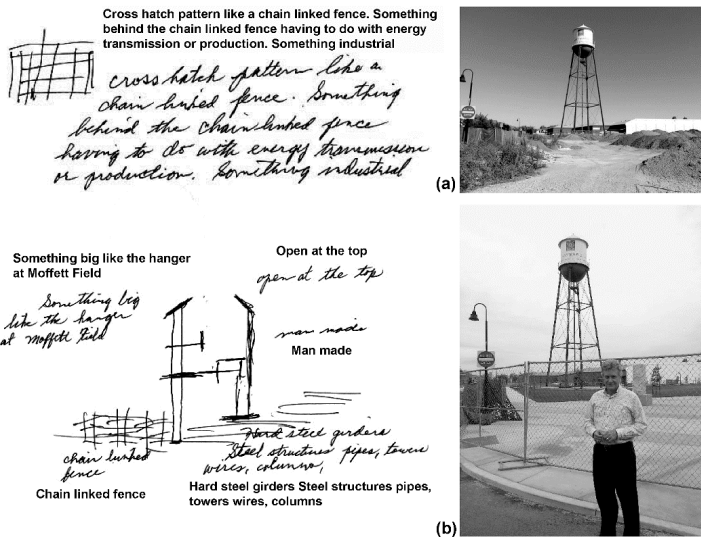 Cross hatch pattern like a chain linked fence. Something
behind the chain linked fence having to do with energy
transmission or production. Something industrial
cross hatch pattern like a
chain linked fence. Something
behind the chain linked fence
having to do with energy transmission
or production. Something industrial
(a)
Something big like the hanger
at Moffett Field
Something big
like the hanger
at Moffett Field
Open at the top
open at the top
man made
Man made
chain linked
fence
Chain linked fence
Hard steel girders
Steel structures pipes, towers
wires, columns,
Hard steel girders Steel structures pipes,
towers wires, columns
(b)